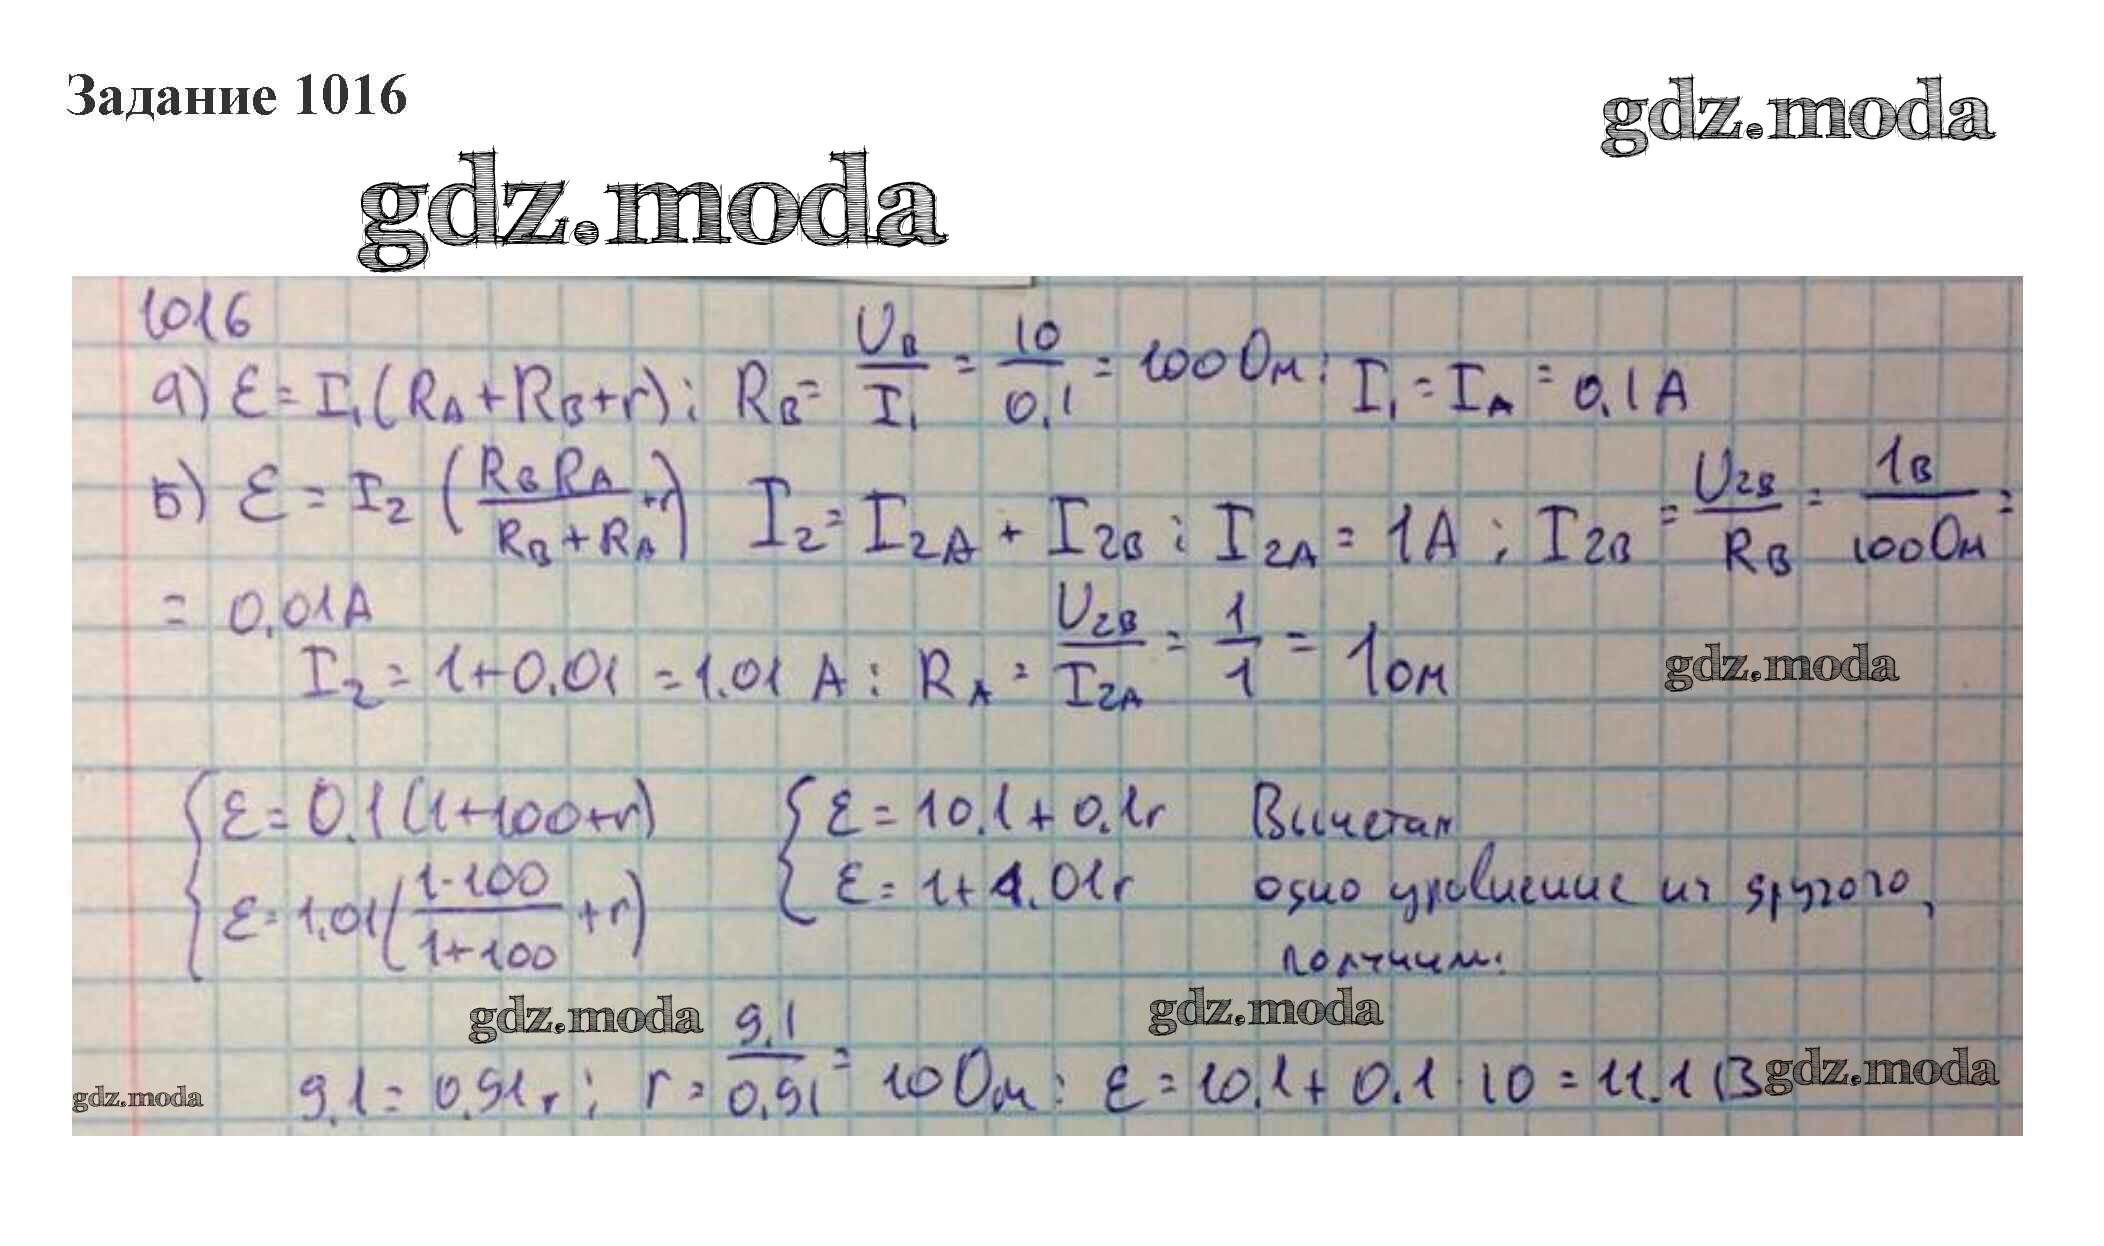 Задание 1016
gdz.moda
gdz.moda
1016
а) Ɛ = I₁(R_A + R_B + r); R_B = U_B / I₁ = 10 / 0,1 = 100 Ом; I₁ = I_A = 0,1 А
б) Ɛ = I₂ (R_B R_A / (R_B + R_A) + r) I₂ = I₂A + I₂B; I₂A = 1А; I₂B = U₂B / R_B = 1В / 100 Ом =
= 0,01А
I₂ = 1 + 0,01 = 1.01 А; R_A = U₂B / I₂A = 1 / 1 = 1 Ом
gdz.moda
{ Ɛ = 0,1 (1 + 100 + r) { Ɛ = 10,1 + 0,1r Вычетам
{ Ɛ = 1,01 (1·100 / (1 + 100) + r) { Ɛ = 1 + 1,01r одно уравнение из другого,
получим:
gdz.moda
gdz.moda
9,1 = 0,91r; r = 9,1 / 0,91 = 10 Ом; Ɛ = 10,1 + 0,1 · 10 = 11.1 В
gdz.moda
gdz.moda